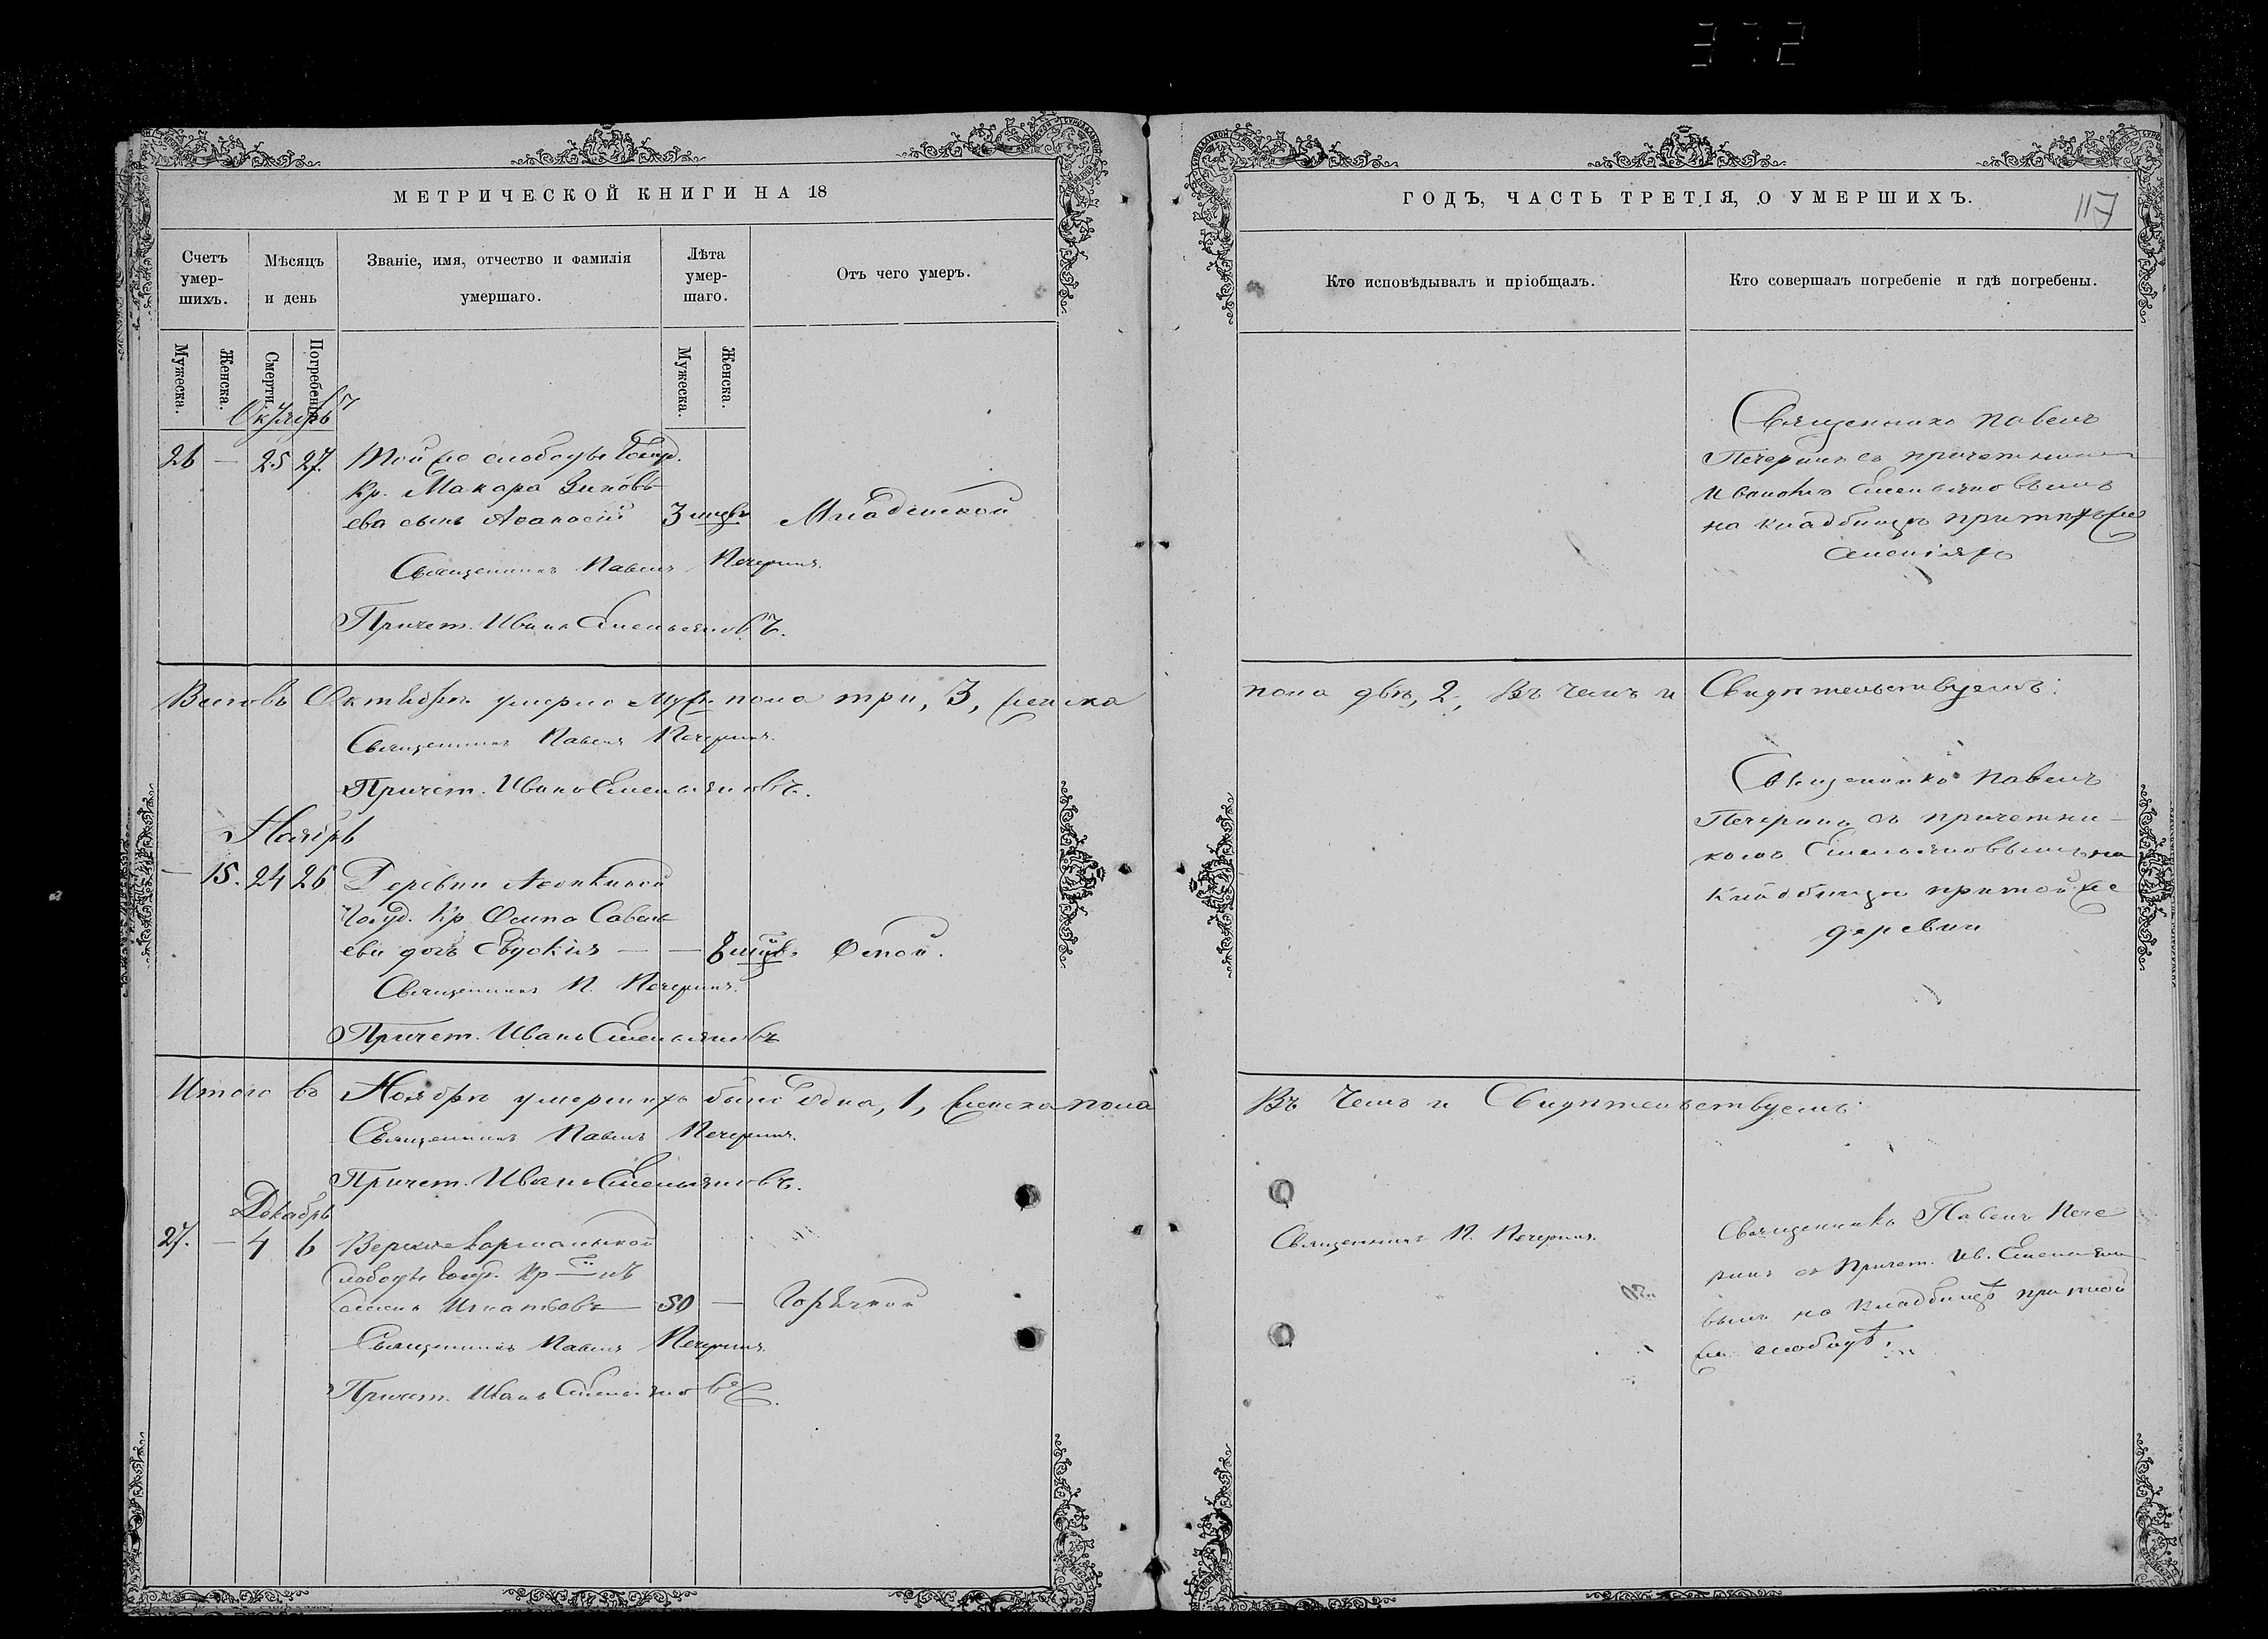 МЕТРИЧЕСКОЙ КНИГИ НА 18
Счетъ умер-шихъ.
Мѣсяцъ и день
Званіе, имя, отчество и фамилія умершаго.
Лѣта умер-шаго.
Отъ чего умеръ.
Мужеска.
Женска.
Смерти.
Погребенія
Мужеска.
Женска.
Октябрь
26 — 25 27. Той же слободы Госуд.
Кр. Макара Зиновь-
ева сынъ Аѳанасій 3 Младенской
Священникъ Павелъ Печеринъ.
Причет. Иванъ Емельяновъ.
Октябрѣ умерло муж. пола три, 3, женска
Священникъ Павелъ Печеринъ.
Причет. Иванъ Емельяновъ.
Ноябрь
— 15. 24 26 Деревни
Госуд. Кр.
ева дочь Евдокія — — 8 Оспой.
Священникъ П. Печеринъ.
Причет. Иванъ Емельяновъ
Итого въ Ноябрѣ умершихъ было одна, 1, женска пола
Священникъ Павелъ Печеринъ.
Причет. Иванъ Емельяновъ.
Декабрь
27. — 4 6
слободы Госуд. Кр
Игнатьевъ — 50 — Горячкой
Священникъ Павелъ Печеринъ.
Причет. Иванъ Емельяновъ.
ГОДЪ, ЧАСТЬ ТРЕТІЯ, О УМЕРШИХЪ.
117
Кто исповѣдывалъ и пріобщалъ.
Кто совершалъ погребеніе и гдѣ погребены.
Священникъ Павелъ
Печеринъ съ
Иваномъ Емельяновымъ
на кладбищѣ при
пола двѣ, 2, Въ чемъ и Свидѣтельствуемъ:
Священникъ Павелъ
Печеринъ съ причетни-
комъ Емельяновымъ на
кладбищѣ при той же
деревни
Въ чемъ и Свидѣтельствуемъ:
Священникъ П. Печеринъ.
Священникъ Павелъ Пече
ринъ съ Причет. Ив. Емельяно
вымъ на кладбищѣ при той
же слободѣ.